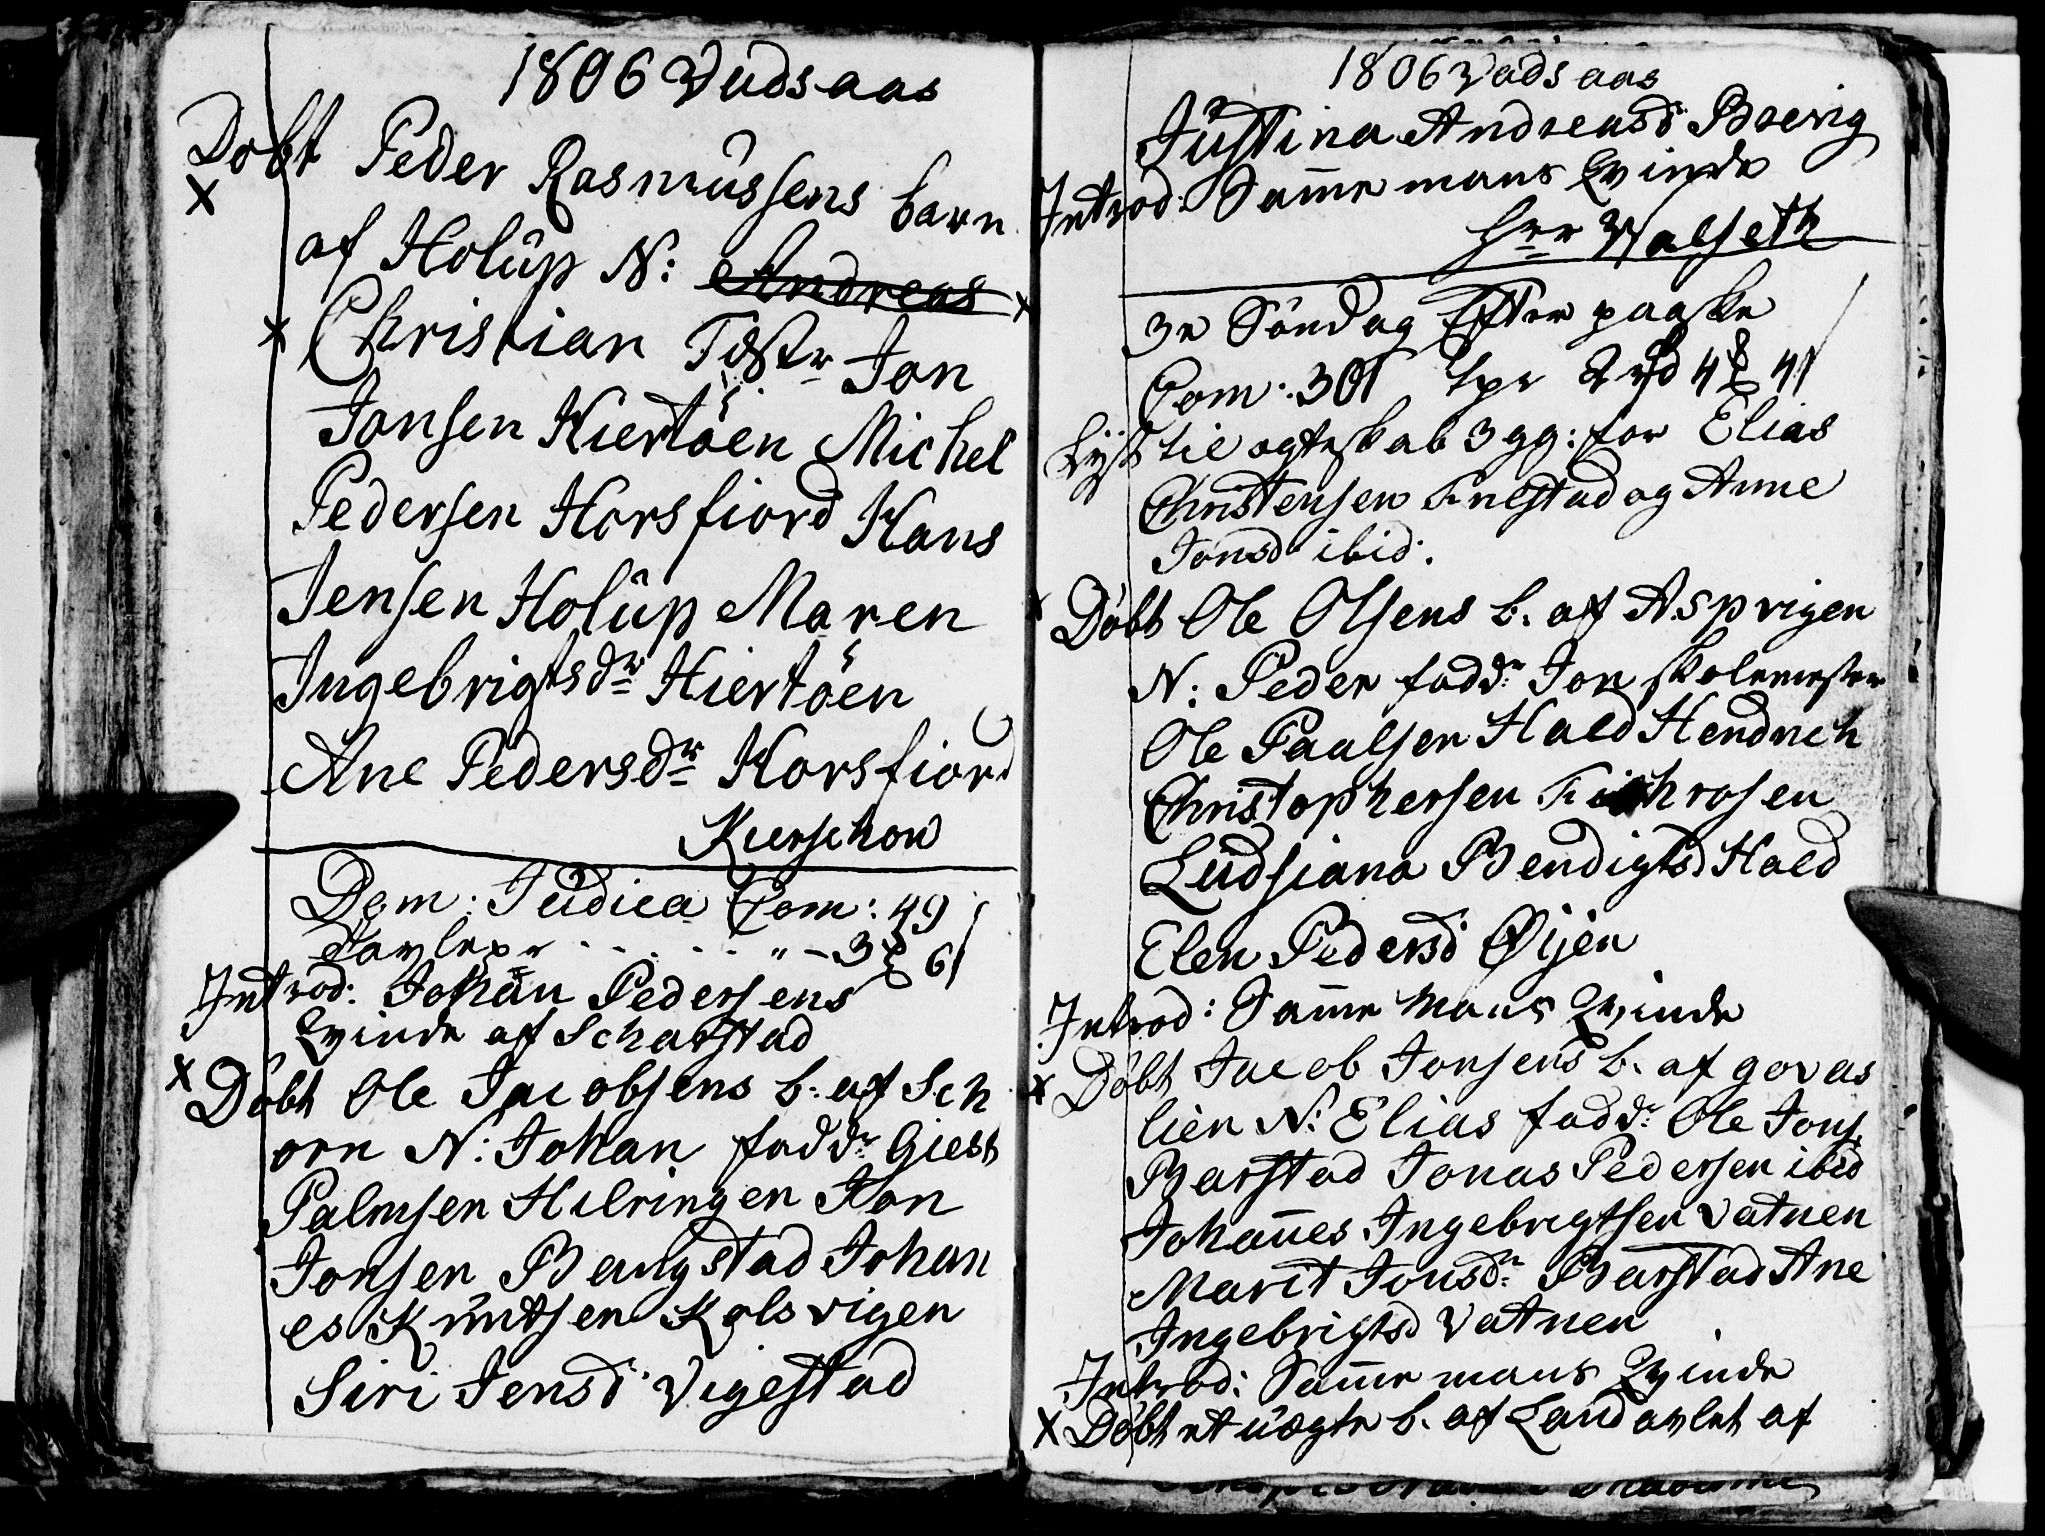 1806 Vadsaas
Døbt Peder Rasmussens barn
af Holup N: Andreas
Christian Test:r Jon
Jonsen Hiertöen Michel
Pedersen Horsfiord Hans
Jensen Holup Maren
Ingebrigtsdr Hiertöen
Ane Pedersdr Horsfiord
Kierschow
Dom: Judica Com: 49
tavlepr . . . . . " - 3 # 6 s
Introd: Johan Pedersens
Qvinde af Scharstad
Döbt Ole Jacobsens b. af Sch
orn N: Johan faddr Giert
Palmsen Hilringen Jon
Jonsen Bangstad Johan
es Knutsen Kalsvigen
Siri Jensd Vigestad
1806 Vadsaas
Justina Andreasd Boevig
Introd: Samme mans Qvinde
hrr Walseth
3e Söndag Efter paaske
Com: 301 tpr 2 rd 4 # 4 s
Lyst til ægteskab 3 gg: for Elias
Christensen Finstad og Anne
Jonsd ibid.
Döbt Ole Olsens b. af Asprigen
N: Peder faddr Jon skolemester
Ole Paalsen Hald Hendrich
Christophersen Fischrosen
Ludsiana Bendigtsd Hald
Elen Pedersd Øijen
Introd: Samme Mans Qvinde
Döbt Jacob Jonsens b. af govas
lien N: Elias faddr Ole Jons.
Barstad Jonas Pedersen ibid
Johannes Ingebrigtsen Vatnen
Marit Jonsdr Barstad Ane
Ingebrigtsd Vatnen
Introd: Samme mans Qvinde
Döbt et uægte b. af Land avlet af